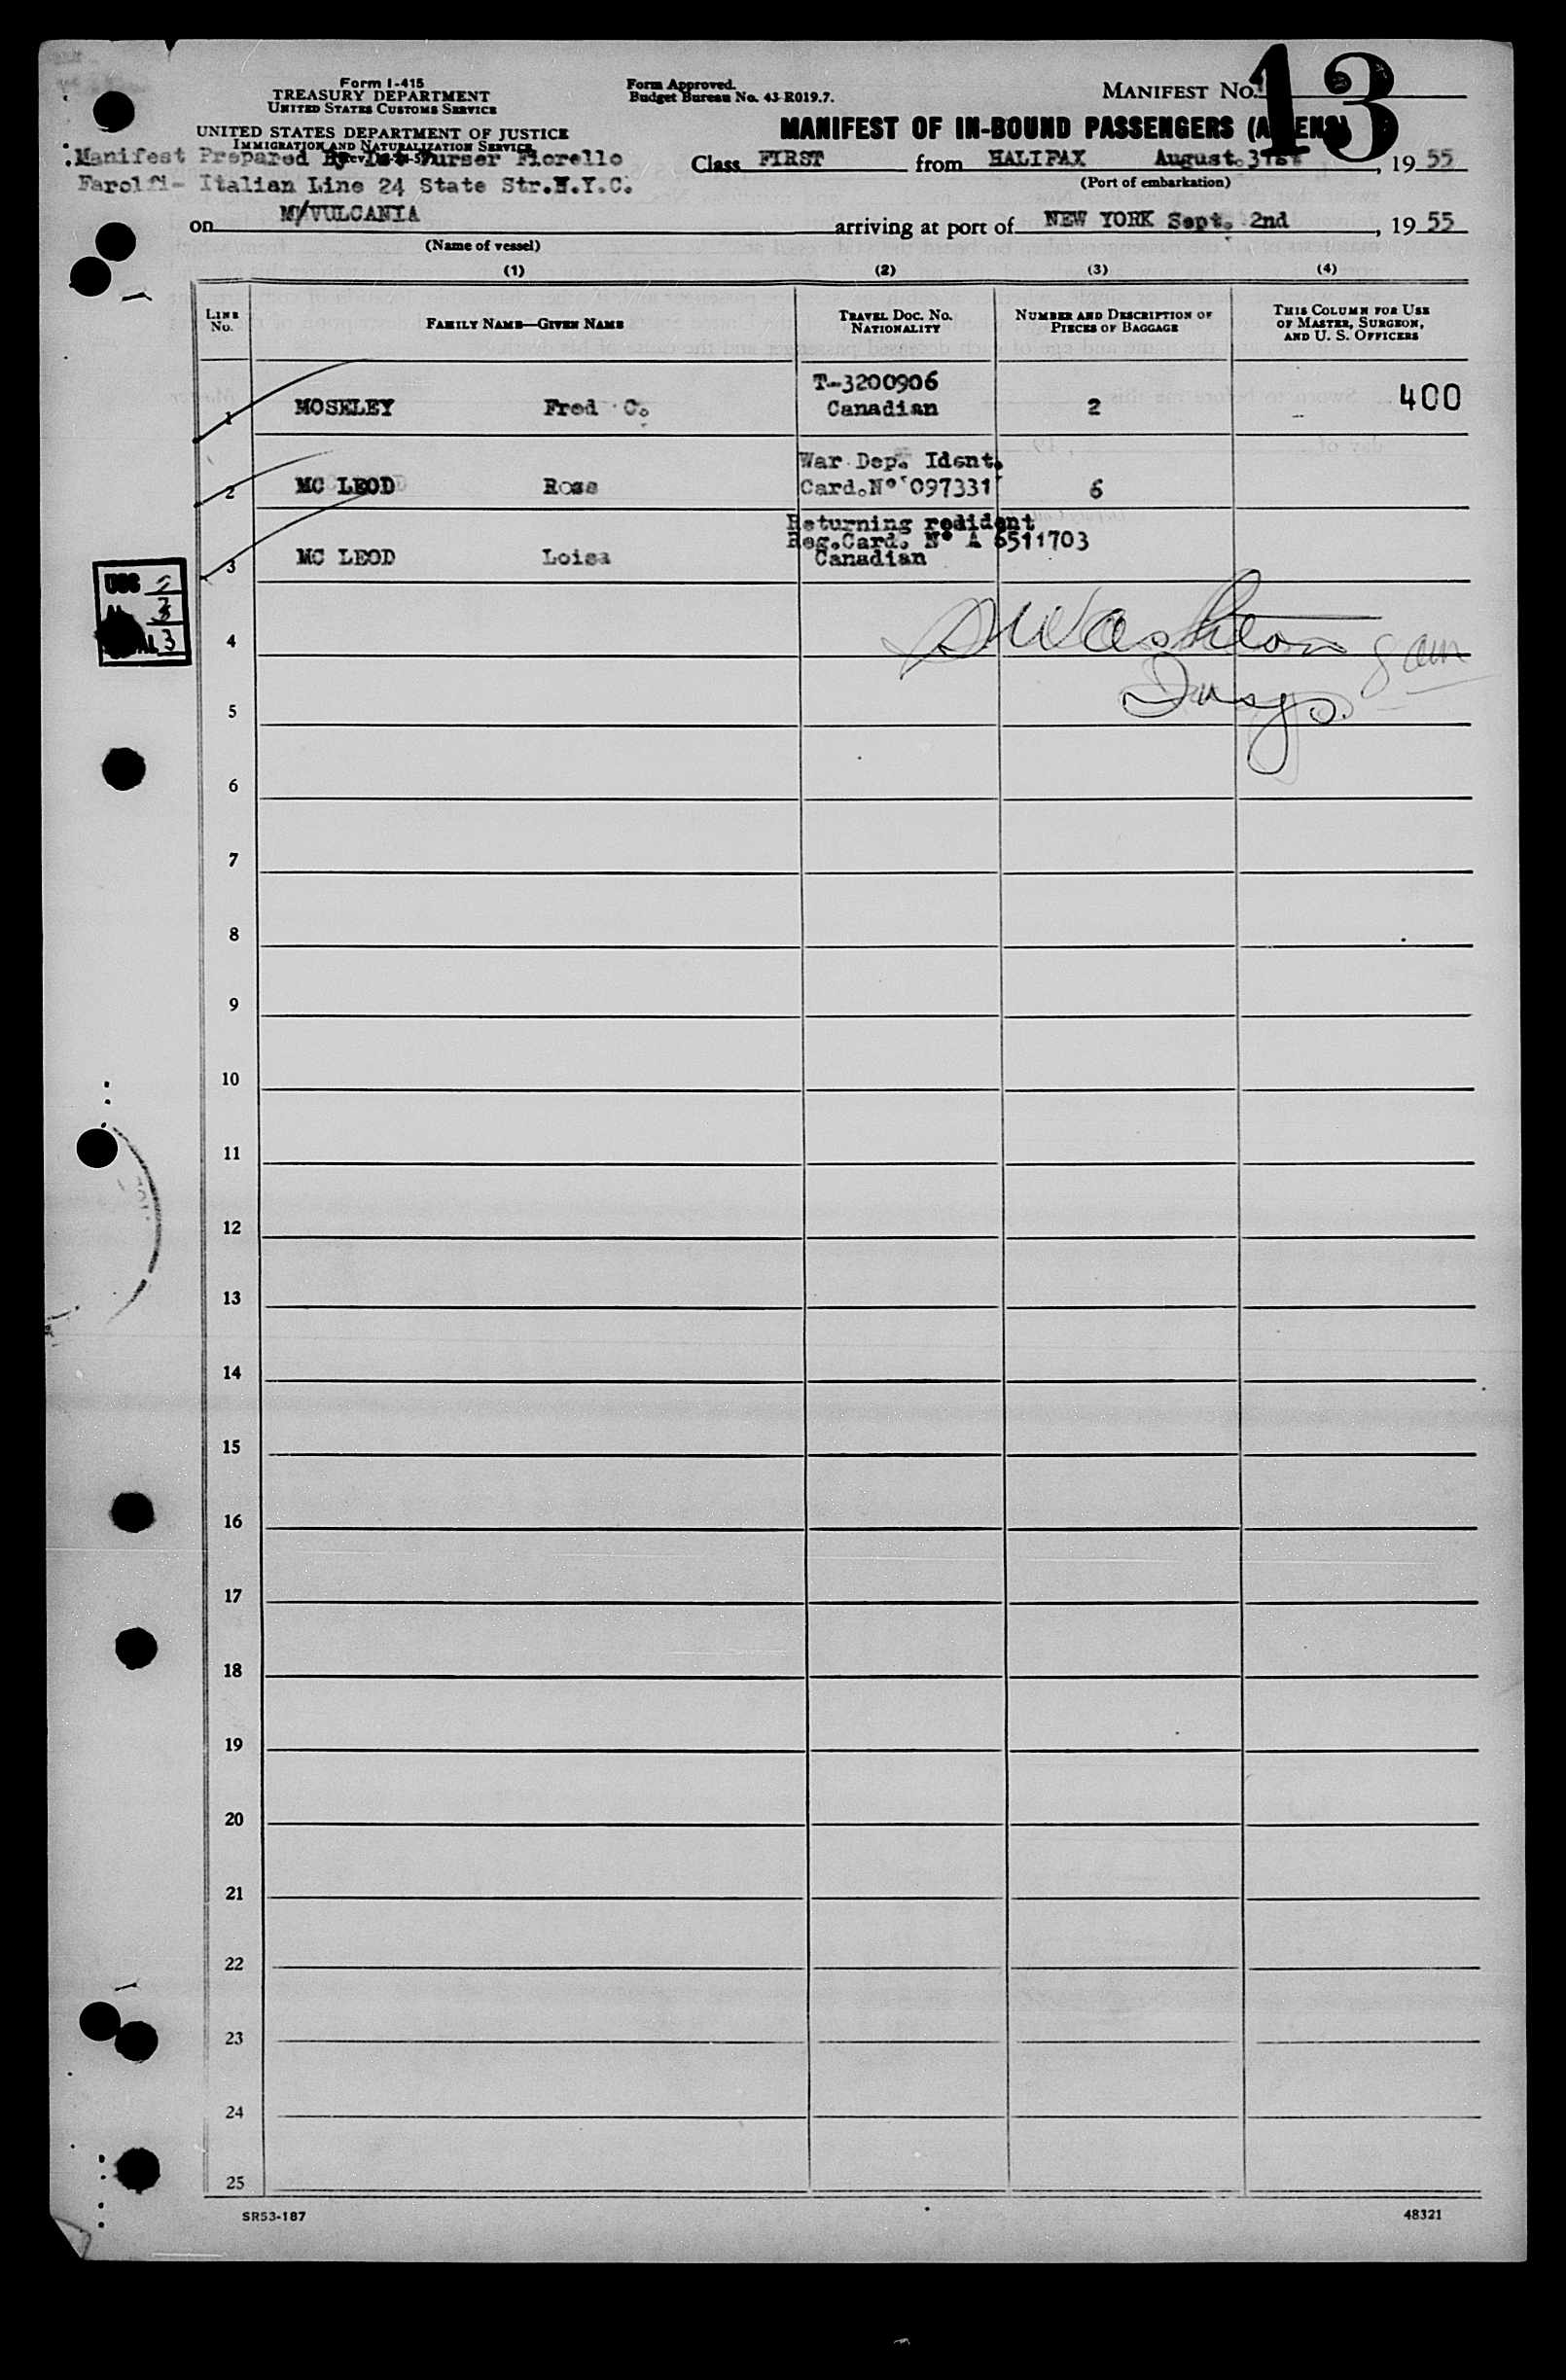 Form I-415
TREASURY DEPARTMENT
UNITED STATES CUSTOMS SERVICE
UNITED STATES DEPARTMENT OF JUSTICE
IMMIGRATION AND NATURALIZATION SERVICE
Form Approved.
Budget Bureau No. 43-R019.7.
MANIFEST NO. 13
MANIFEST OF IN-BOUND PASSENGERS (ALIENS)
Manifest Prepared By Purser Fiorello
Farolfi- Italian Line 24 State Str.N.Y.C.
Class FIRST from HALIFAX August.31st, 19 55
(Port of embarkation)
on M/VULCANIA arriving at port of NEW YORK Sept. 2nd, 19 55
(Name of vessel)
(1) (2) (3) (4)
LINE NO. FAMILY NAME—GIVEN NAME TRAVEL DOC. NO. NATIONALITY NUMBER AND DESCRIPTION OF PIECES OF BAGGAGE THIS COLUMN FOR USE OF MASTER, SURGEON, AND U. S. OFFICERS
T-3200906
1 MOSELEY Fred C. Canadian 2 400
War Dep. Ident.
2 MC LEOD Ross Card.Nº 097331 6
Returning redident
Reg.Card. Nº A 6511703
3 MC LEOD Loisa Canadian
USC
3
4
5
6
7
8
9
10
11
12
13
14
15
16
17
18
19
20
21
22
23
24
25
SR53-187 48321